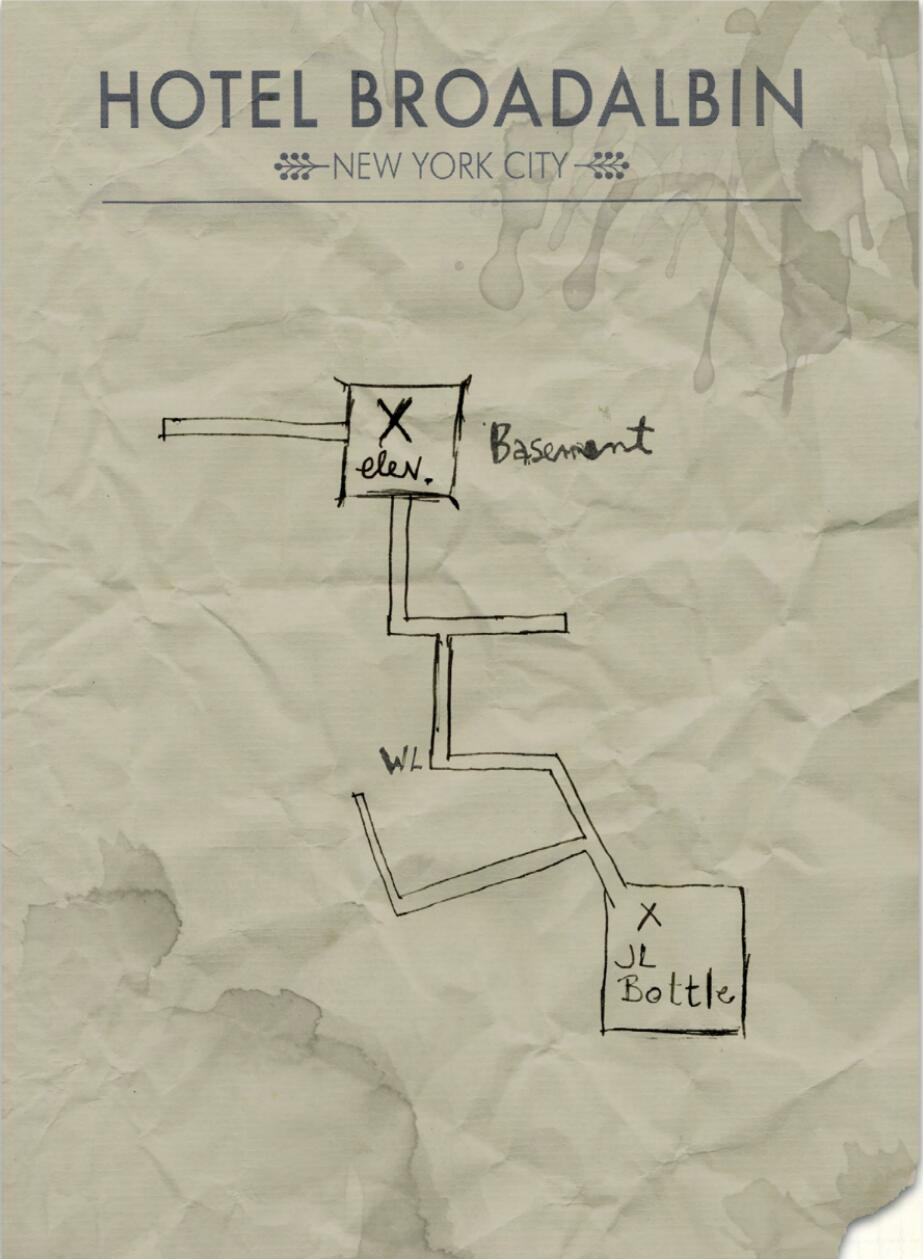 HOTEL BROADALBIN
NEW YORK CITY
X
elev.
Basement
WL
X
JL
Bottle